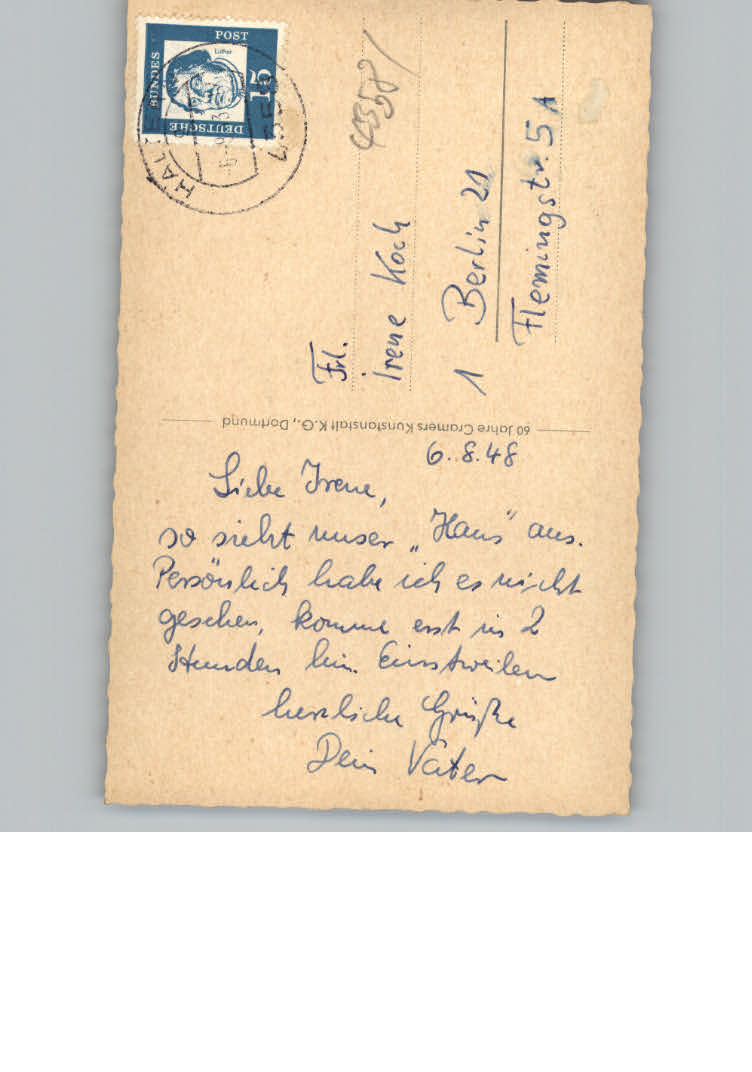 POST
Luther
15
BUNDES
DEUTSCHE
HAL
43581
Frl.
Irene Koch
1 Berlin 21
Flemingstr. 5A
60 Jahre Cramers Kunstanstalt K.G., Dortmund
6.8.48
Liebe Irene,
so sieht unser „Haus" aus.
Persönlich habe ich es nicht
gesehen, komme erst in 2
Stunden hin. Einstweilen
herzliche Grüße
Dein Vater